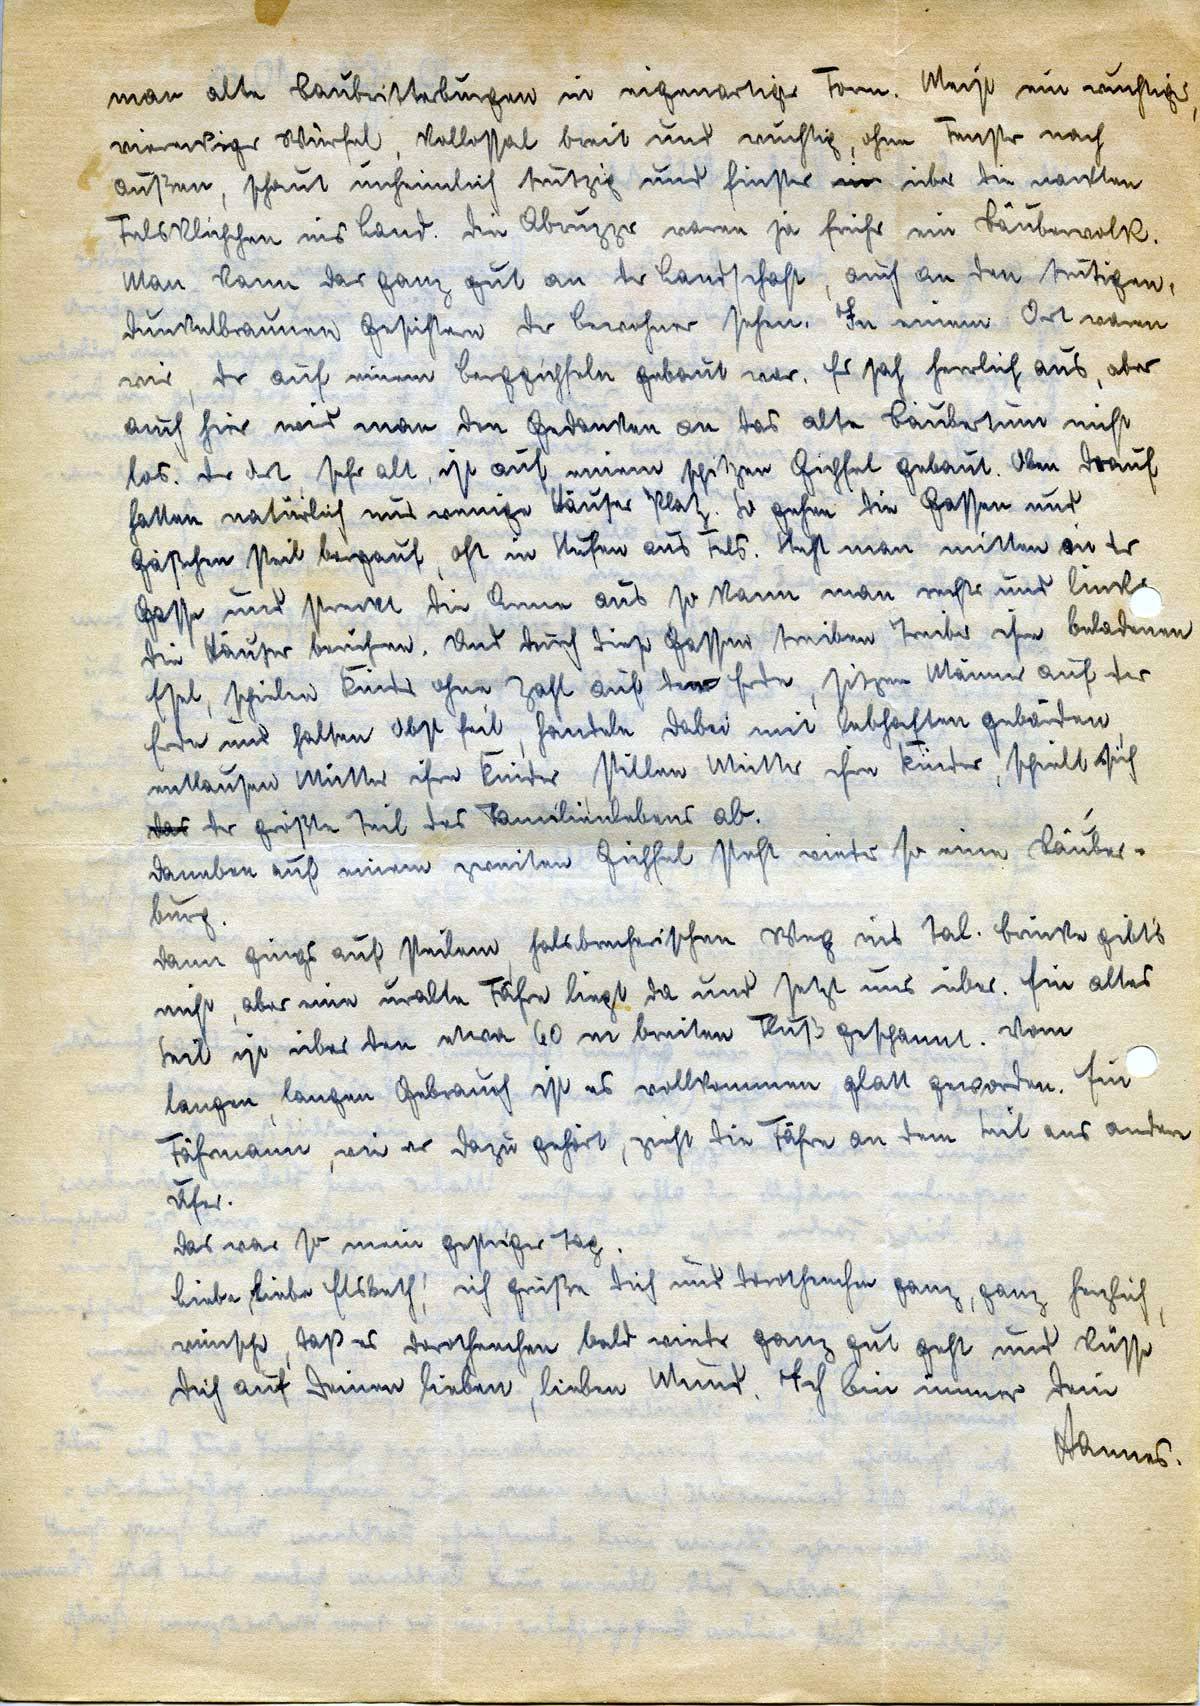 man alte Raubritterburgen in eigenartiger Form. Meist ein wuchtiger,
viereckiger Würfel, kollossal breit und wuchtig, ohne Fenster nach
außen, schaut unheimlich trutzig und finster über die nackten
Felsklippchen ins Land. Die Abruzzer waren ja früher ein Räubervolk.
Man kann das ganz gut an der Landschaft, auch an den trutigen,
dunkelbraunen Gesichtern der Bewohner sehen. In einem Ort waren
wir, der auf einem Berggipfeln gebaut war. Es sah herrlich aus, aber
auch hier wird man den Gedanken an das alte Räubertum nicht
los. Der Ort, sehr alt, ist auf einem spitzen Gipfel gebaut. Oben drauf
hatten natürlich nur wenige Häuser Platz. So gehen die Gassen und
Gäßchen steil bergauf, oft in Stufen aus Fels. Steht man mitten in der
Gasse und streckt die Arme aus so kann man rechts und links
die Häuser berühren. Und durch diese Gassen treiben Treiber ihre beladenen
Esel, spielen Kinder ohne Zahl auf der Erde, sitzen Männer auf der
Erde und halten Obst feil, handeln dabei mit lebhaften Gebärden,
entlausen Mütter ihre Kinder stillen Mütter ihre Kinder, spielt sich
das der größte Teil des Familienlebens ab.
Daneben auf einem zweiten Gipfel steht wieder so eine Räuber-
burg.
Dann gings auf steilem, halsbrecherischen Weg ins Tal. Brücke gibt's
nicht, aber eine uralte Fähre liegt da und setzt uns über. Ein altes
Seil ist über den etwa 60 m breiten Fluß gespannt. Vom
langen, langen Gebrauch ist es vollkommen glatt geworden. Ein
Fährmann, wie er dazu gehört, zieht die Fähre an dem Seil ans andere
Ufer.
Das war so mein gestriger Tag.
Liebe, liebe Elsbeth! ich grüße Dich und Dorotheechen ganz, ganz herzlich,
wünsche, daß es Dorotheechen bald wieder ganz gut geht und küsse
Dich auf Deinen lieben, lieben Mund. Ich bin immer Dein
Hannes.